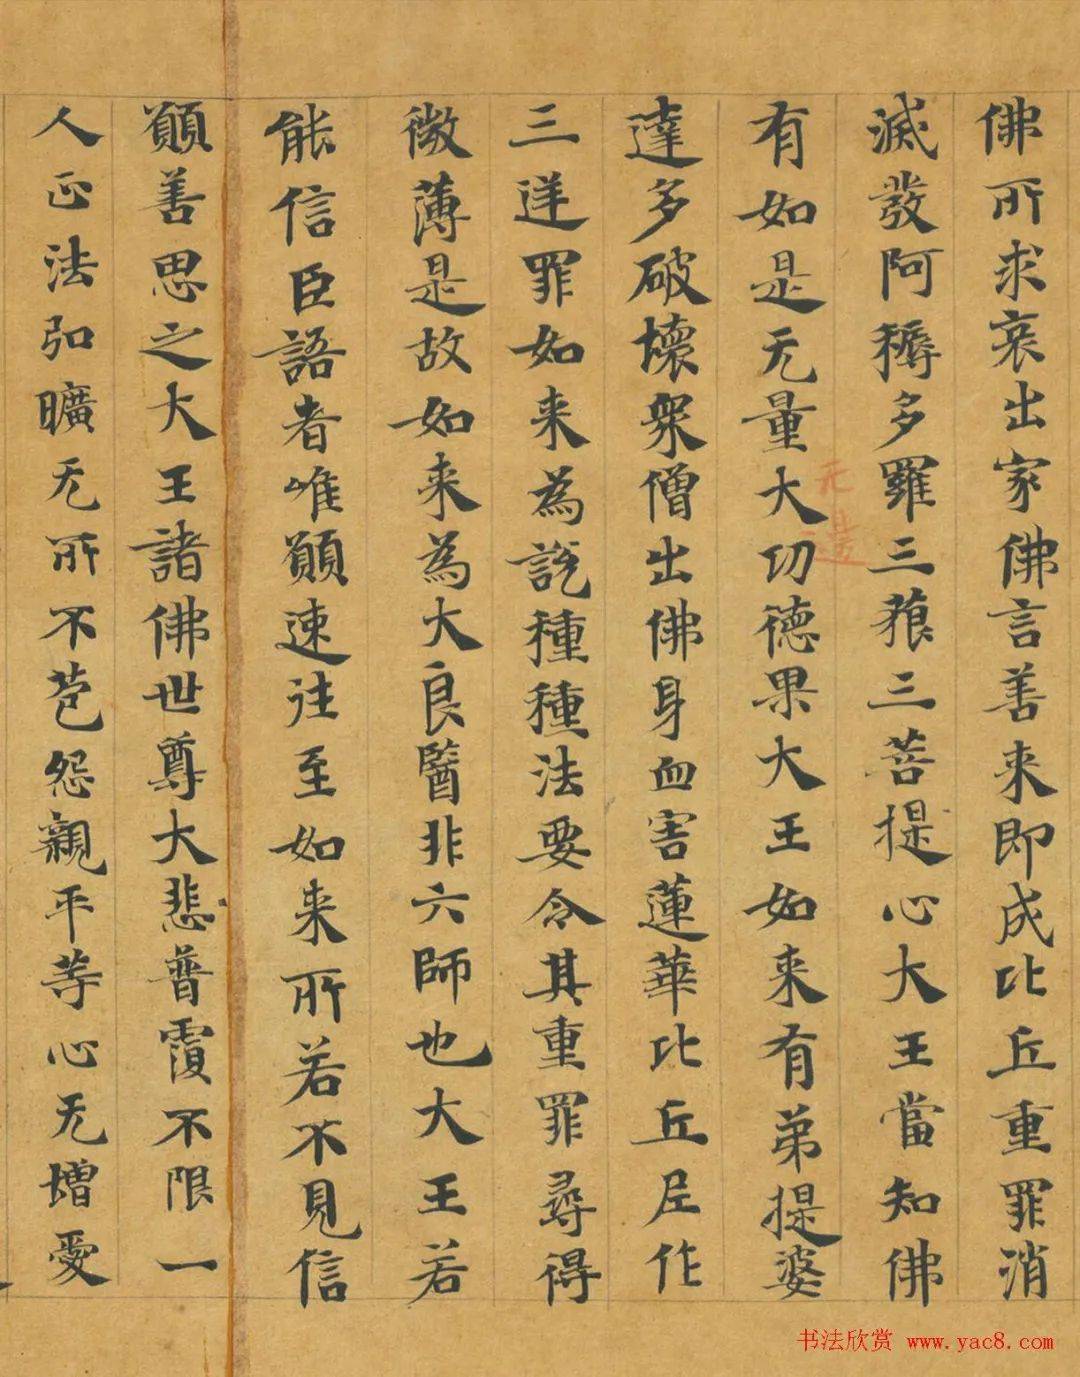 佛所求哀出家佛言善来即成比丘重罪消
滅發阿耨多羅三藐三菩提心大王當知佛
有如是无量大功德果大王如来有弟提婆
達多破壞衆僧出佛身血害蓮華比丘尼作
三逆罪如来為説種種法要令其重罪尋得
微薄是故如来為大良醫非六師也大王若
能信臣語者唯願速往至如来所若不見信
願善思之大王諸佛世尊大悲普覆不限一
人正法弘曠无所不苞怨親平等心无憎愛
无邊
书法欣赏 www.yac8.com